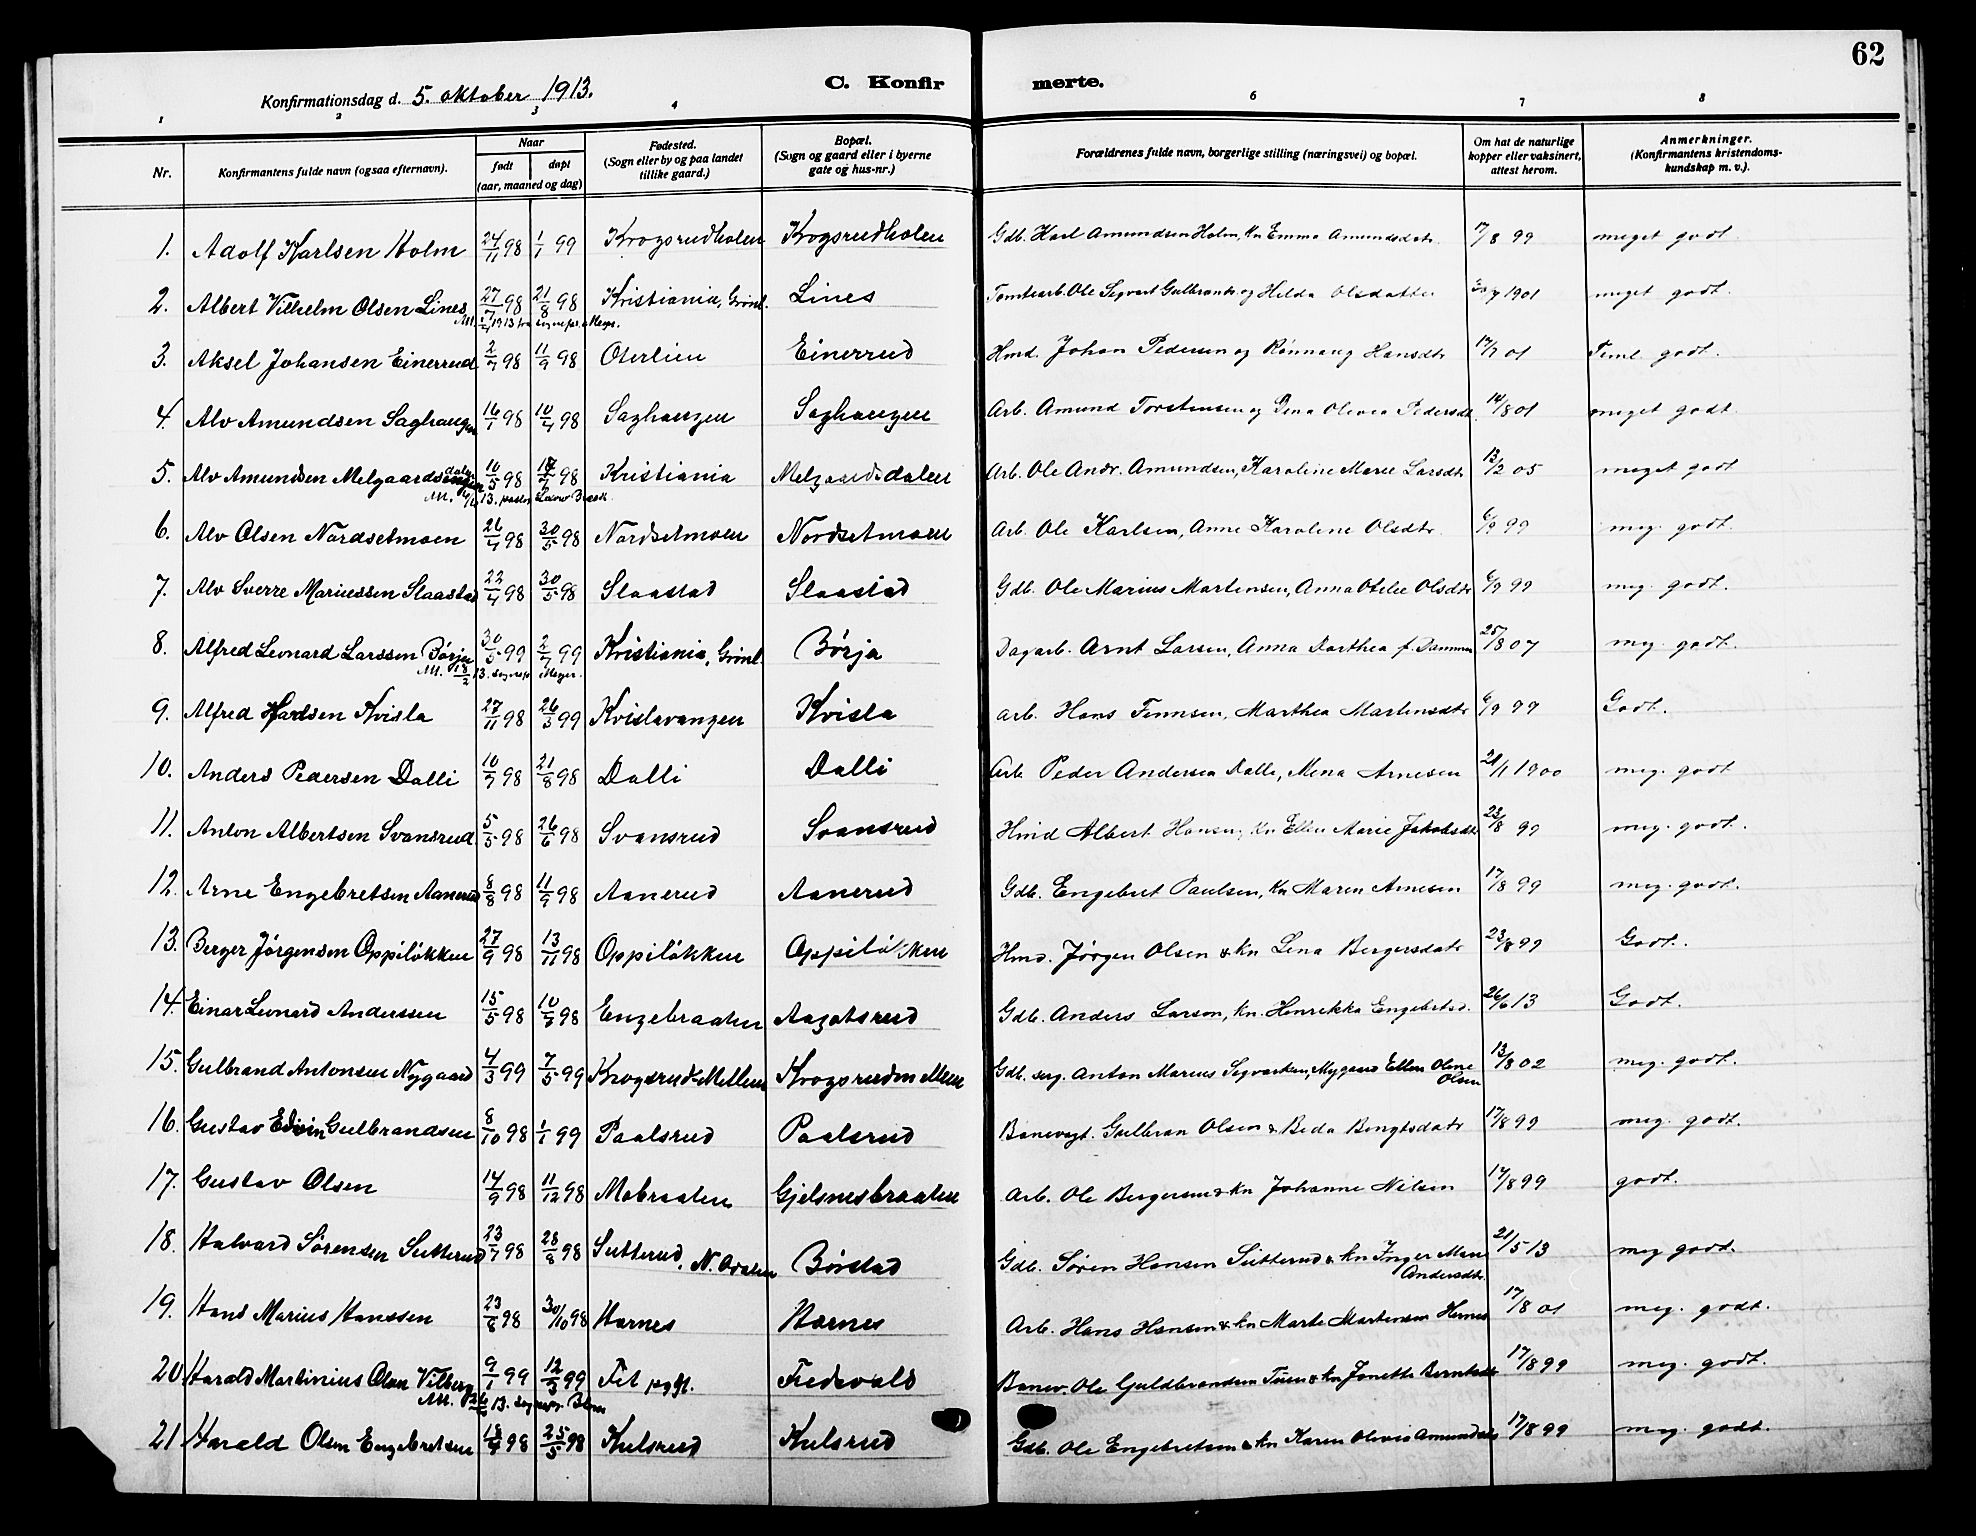 62
C. Konfirmerte.
Konfirmationsdag d. 5. oktober 1913.
1 2 3 4 6 7 8
Nr. Konfirmantens fulde navn (ogsaa efternavn). Naar født døpt (aar, maaned og dag) Fødested. (Sogn eller by og paa landet tillike gaard.) Bopæl. (Sogn og gaard eller i byerne gate og hus-nr.) Forældrenes fulde navn, borgerlige stilling (næringsvei) og bopæl. Om hat de naturlige kopper eller vaksinert, attest herom. Anmerkninger. (Konfirmantens kristendomskundskap m. v.).
1. Adolf Karlsen Holm 24/11 98 1/1 99 Krogsrudholen Krogsrudholen Gdb. Karl Amundsen Holm, kn Emma Amundsdatr. 17/8 99 meget godt.
2. Albert Vilhelm Olsen Lines 27/7 98 21/8 98 Kristiania, Grønl. Lines Tomtearb. Ole Sigvart Gulbrands. og Hilda Olsdatter 1901 meget godt.
3. Aksel Johansen Einerrud 2/7 98 11/9 98 Oterlien Einerrud Hmd. Johan Pedersen og Rønnaug Hansdtr 01 Teml. godt.
4. Alv Amundsen Saghaugen 16/1 98 10/4 98 Saghaugen Saghaugen Arb. Amund Torstensen og Dina Olivia Pedersdt. 14/8 01 meget godt.
5. Alv Amundsen Melgaardsdalen 10/5 98 98 Kristiania Melgaardsdalen Arb. Ole Andr. Amundsen, Karoline Marie Larsdtr 13/2 05 meget godt
6. Alv Olsen Nordsetmoen 26/4 98 30/5 98 Nordsetmoen Nordsetmoen Arb. Ole Karlsen, Anne Karoline Olsdtr. 6/9 99 meg. godt.
7. Alv Sverre Mariussen Slaastad 22/4 98 30/5 98 Slaastad Slaastad Gdb. Ole Marius Martinsen, Anna Otilie Olsdtr 6/9 99 meg. godt.
8. Alfred Leonard Larssen Børja 30/5 99 2/7 99 Kristiania, Grønl. Børja Dagarb. Arnt Larsen, Anna Dorthea f. 25/8 07 meg. godt.
9. Alfred Hansen Kvisla 27/11 98 26/3 99 Kvislavangen Kvisla Arb. Hans Finnsen, Marthea Martinsdtr 6/9 99 Godt.
10. Anders Pedersen Dalli 10/7 98 21/8 98 Dalli Dalli Arb. Peder Andersen Dalli, Mina Arnesen 21/1 1900 meg. godt
11. Anton Albertsen Svansrud 5/5 98 26/6 98 Svansrud Svansrud Hmd Albert Hansen, kn Ellen Marie Jakobsdtr 23/8 99 meg. godt.
12. Arne Engebretsen Aanerud 8/8 98 11/9 98 Aanerud Aanerud Gdb. Engebret Paulsen, kn Maren Arnesen 17/8 99 meg. godt.
13. Berger Jørgensen Oppiløkken 27/9 98 13/11 98 Oppiløkken Oppiløkken Hmd. Jørgen Olsen & kn Lina Bergersdatr 23/8 99 Godt.
14. Einar Leonard Anderssen 15/5 98 10/7 98 Engebraaten Aagotsrud Gdb. Anders Larsen, kn. Henrikka Engebrtsd. 26/6 13 Godt.
15. Gulbrand Antonsen Nygaard 4/3 99 7/5 99 Krogsrud-Mellem Krogsrudmellem Gdb. Anton Marius Sigvartsen, Nygaard Ellen Oline Olsen 13/8 02 meg. godt.
16. Gustav Edvin Gulbrandsen 8/10 98 1/1 99 Paalsrud Paalsrud Banevagt. Gulbran Olsen & Beda Bengtsdatr 17/8 99 meg. godt.
17. Gustav Olsen 14/9 98 11/12 98 Mobraaten Gjelsnesbraaten Arb. Ole Bergersen & kn Johanne Nilsen 17/8 99 godt.
18. Halvard Sørensen Sutterud 23/7 98 28/8 98 Sutterud, N. Odalen Børstad Gdb. Søren Hansen Sutterud & kn Inger Mari Andersdtr. 21/5 13 meg godt.
19. Hans Marius Hanssen 23/8 98 30/10 98 Harnes Harnes Arb. Hans Hansen & kn Marte Martinsen Hernes 17/8 01 meg. godt.
20 Harald Martinius Olsen Vilberg 9/1 99 12/3 99 Fet Fredvold Banev. Ole Guldbrandsen & kn Jonette Berntsdtr 17/8 99 meg. godt.
21 Harald Olsen Engebretsen 18/4 98 25/5 98 Kulsrud Kulsrud Gdb. Ole Engebretsen & kn Karen Olivia Amundsdtr 17/8 99 meg. godt.